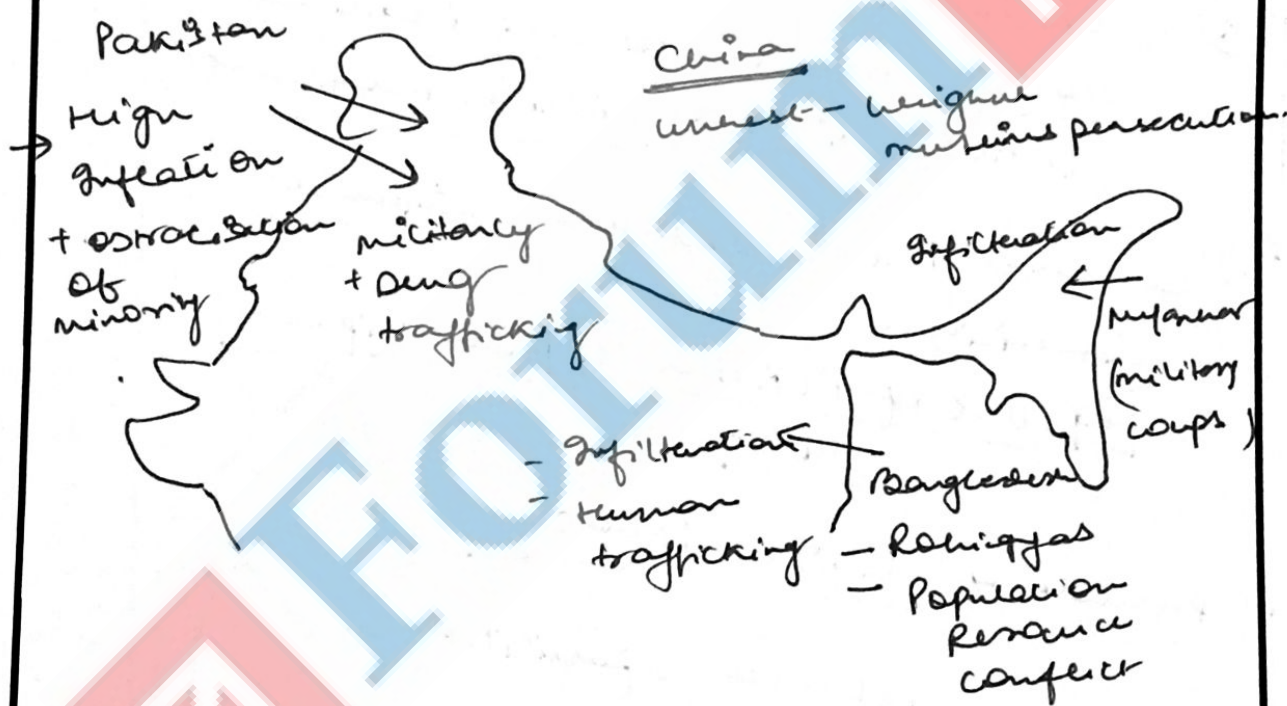 Pakistan
→ High
Inflation
+ ostracisation
of
minority
militancy
+ Drug
trafficking
China
unrest - Uighur
muslims persecution
Infilteration
Myanmar
(military
coups)
- Infilteration
- Human
trafficking
Bangladesh
- Rohiggyas
- Population
Resource
conflict
Forum